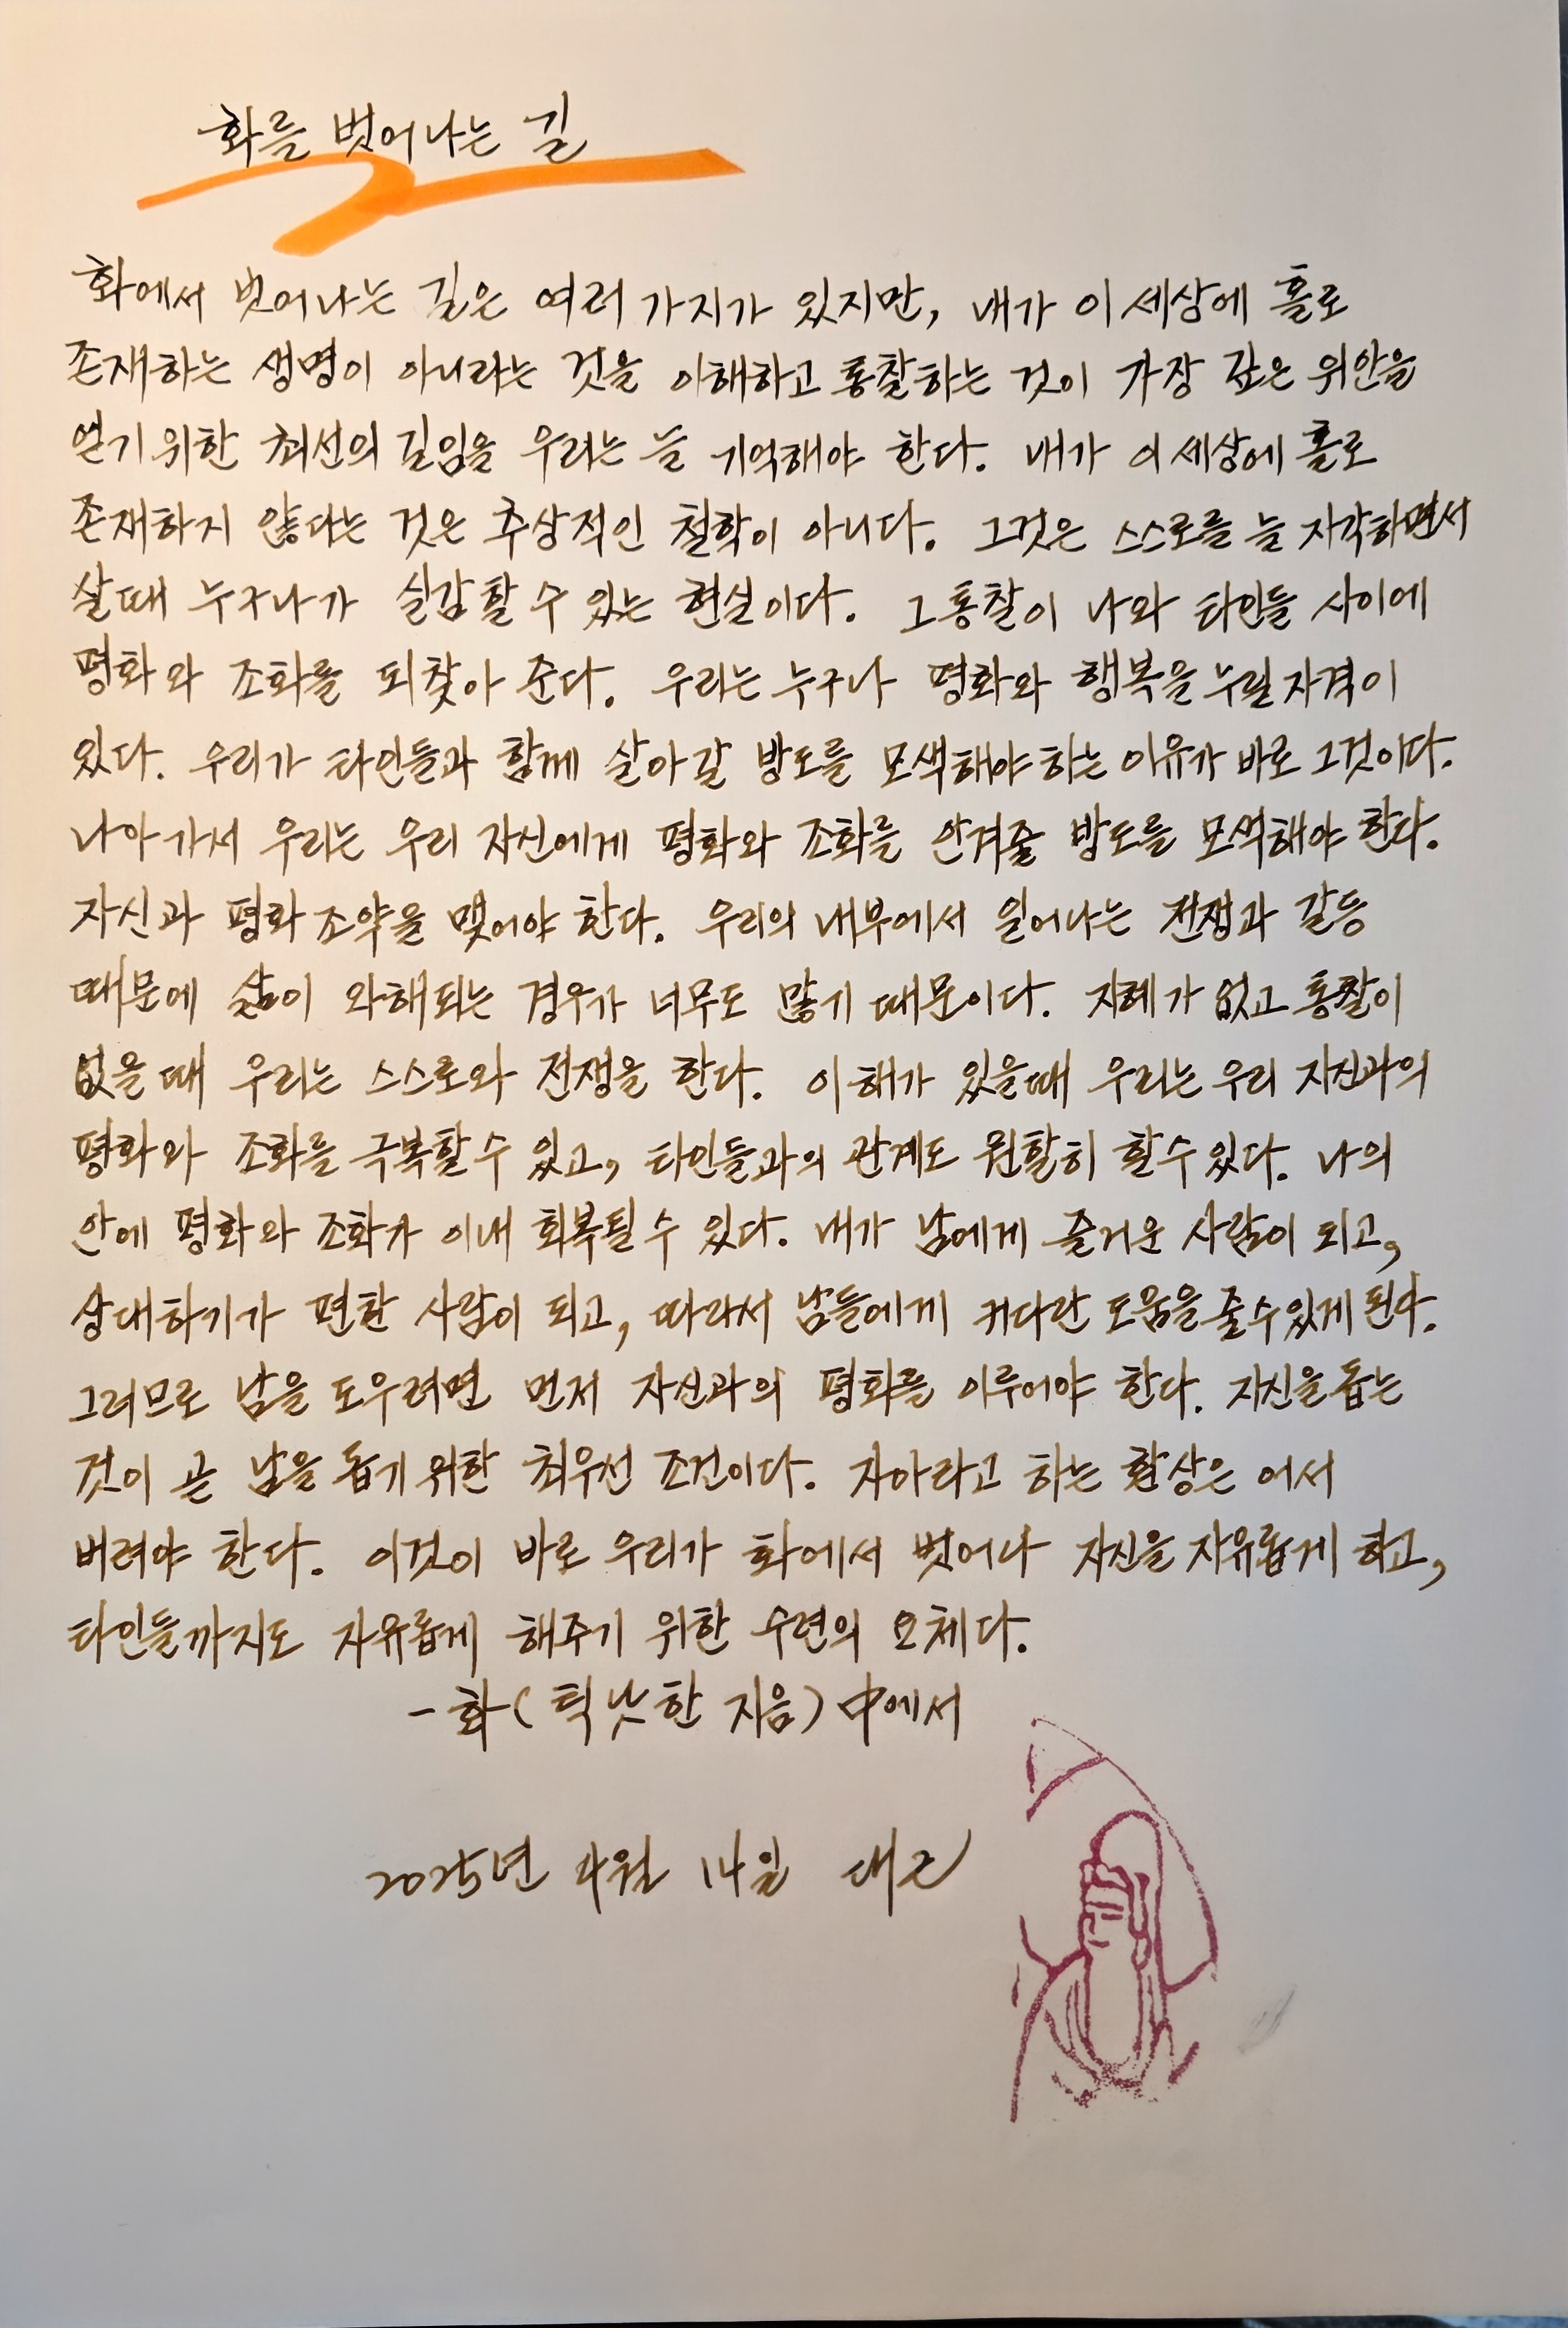 화를 벗어나는 길
화에서 벗어나는 길은 여러 가지가 있지만, 내가 이 세상에 홀로
존재하는 생명이 아니라는 것을 이해하고 통찰하는 것이 가장 깊은 위안을
얻기 위한 최선의 길임을 우리는 늘 기억해야 한다. 내가 이 세상에 홀로
존재하지 않는다는 것은 추상적인 철학이 아니다. 그것은 스스로를 늘 자각하면서
살때 누구나가 실감할 수 있는 현실이다. 그 통찰이 나와 타인들 사이에
평화와 조화를 되찾아 준다. 우리는 누구나 평화와 행복을 누릴 자격이
있다. 우리가 타인들과 함께 살아갈 방도를 모색해야 하는 이유가 바로 그것이다.
나아가서 우리는 우리 자신에게 평화와 조화를 안겨줄 방도를 모색해야 한다.
자신과 평화 조약을 맺어야 한다. 우리의 내부에서 일어나는 전쟁과 갈등
때문에 삶이 와해되는 경우가 너무도 많기 때문이다. 지혜가 없고 통찰이
없을 때 우리는 스스로와 전쟁을 한다. 이해가 있을때 우리는 우리 자신과의
평화와 조화를 극복할 수 있고, 타인들과의 관계도 원활히 할 수 있다. 나의
안에 평화와 조화가 이내 회복될 수 있다. 내가 남에게 즐거운 사람이 되고,
상대하기가 편한 사람이 되고, 따라서 남들에게 커다란 도움을 줄 수 있게 된다.
그러므로 남을 도우려면 먼저 자신과의 평화를 이루어야 한다. 자신을 돕는
것이 곧 남을 돕기 위한 최우선 조건이다. 자아라고 하는 환상은 어서
버려야 한다. 이것이 바로 우리가 화에서 벗어나 자신을 자유롭게 하고,
타인들까지도 자유롭게 해주기 위한 수련의 요체다.
- 화( 틱낫한 지음) 中에서
2025년 4월 14일 대근